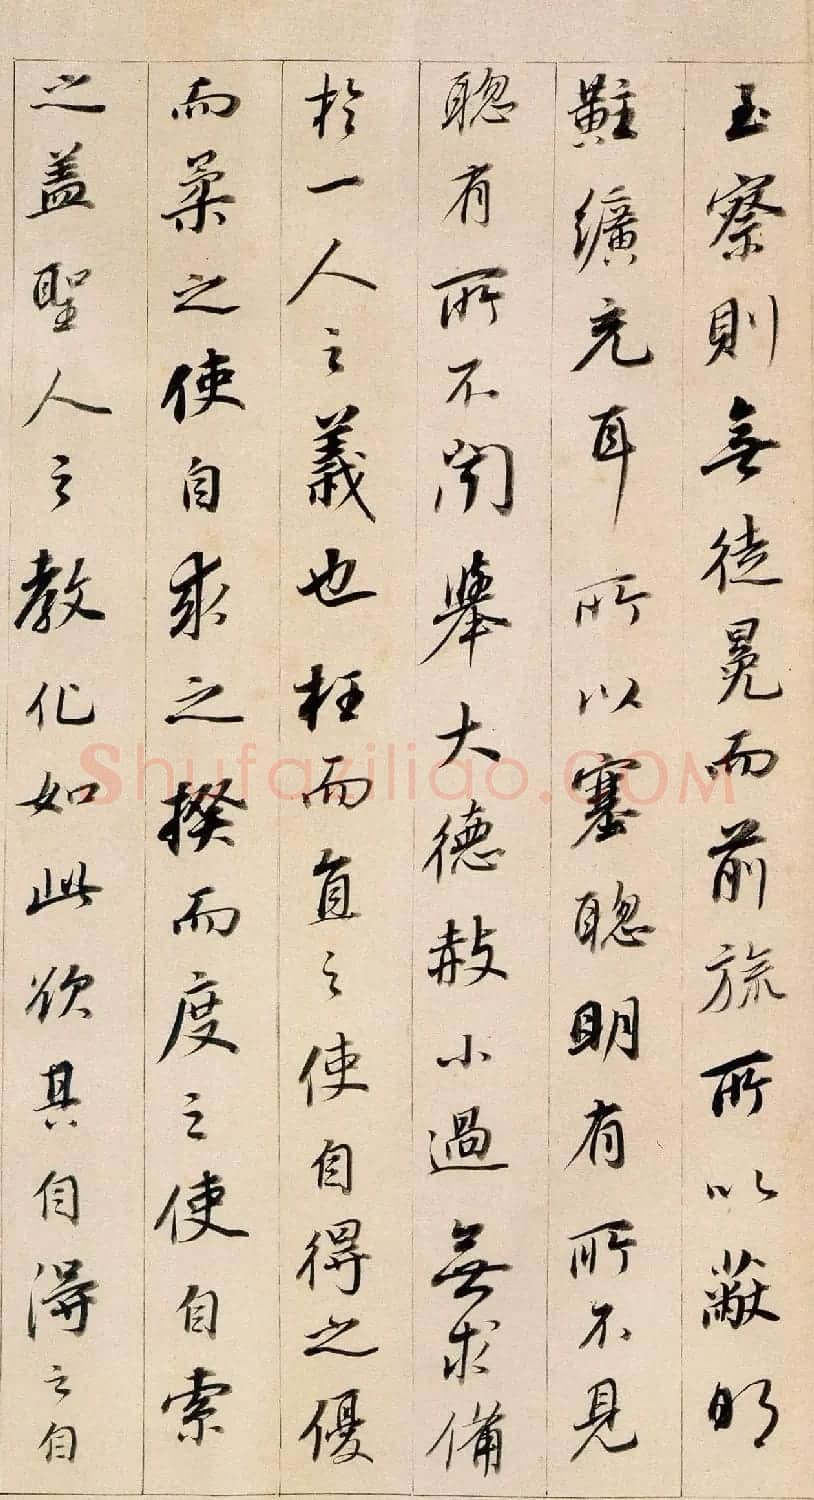 至察則無徒冕而前旒所以蔽明
黈纊充耳所以塞聰明有所不見
聰有所不聞舉大德赦小過無求備
於一人之義也枉而直之使自得之優
而柔之使自求之揆而度之使自索
之蓋聖人之教化如此欲其自得之自
Shufaziliao.COM